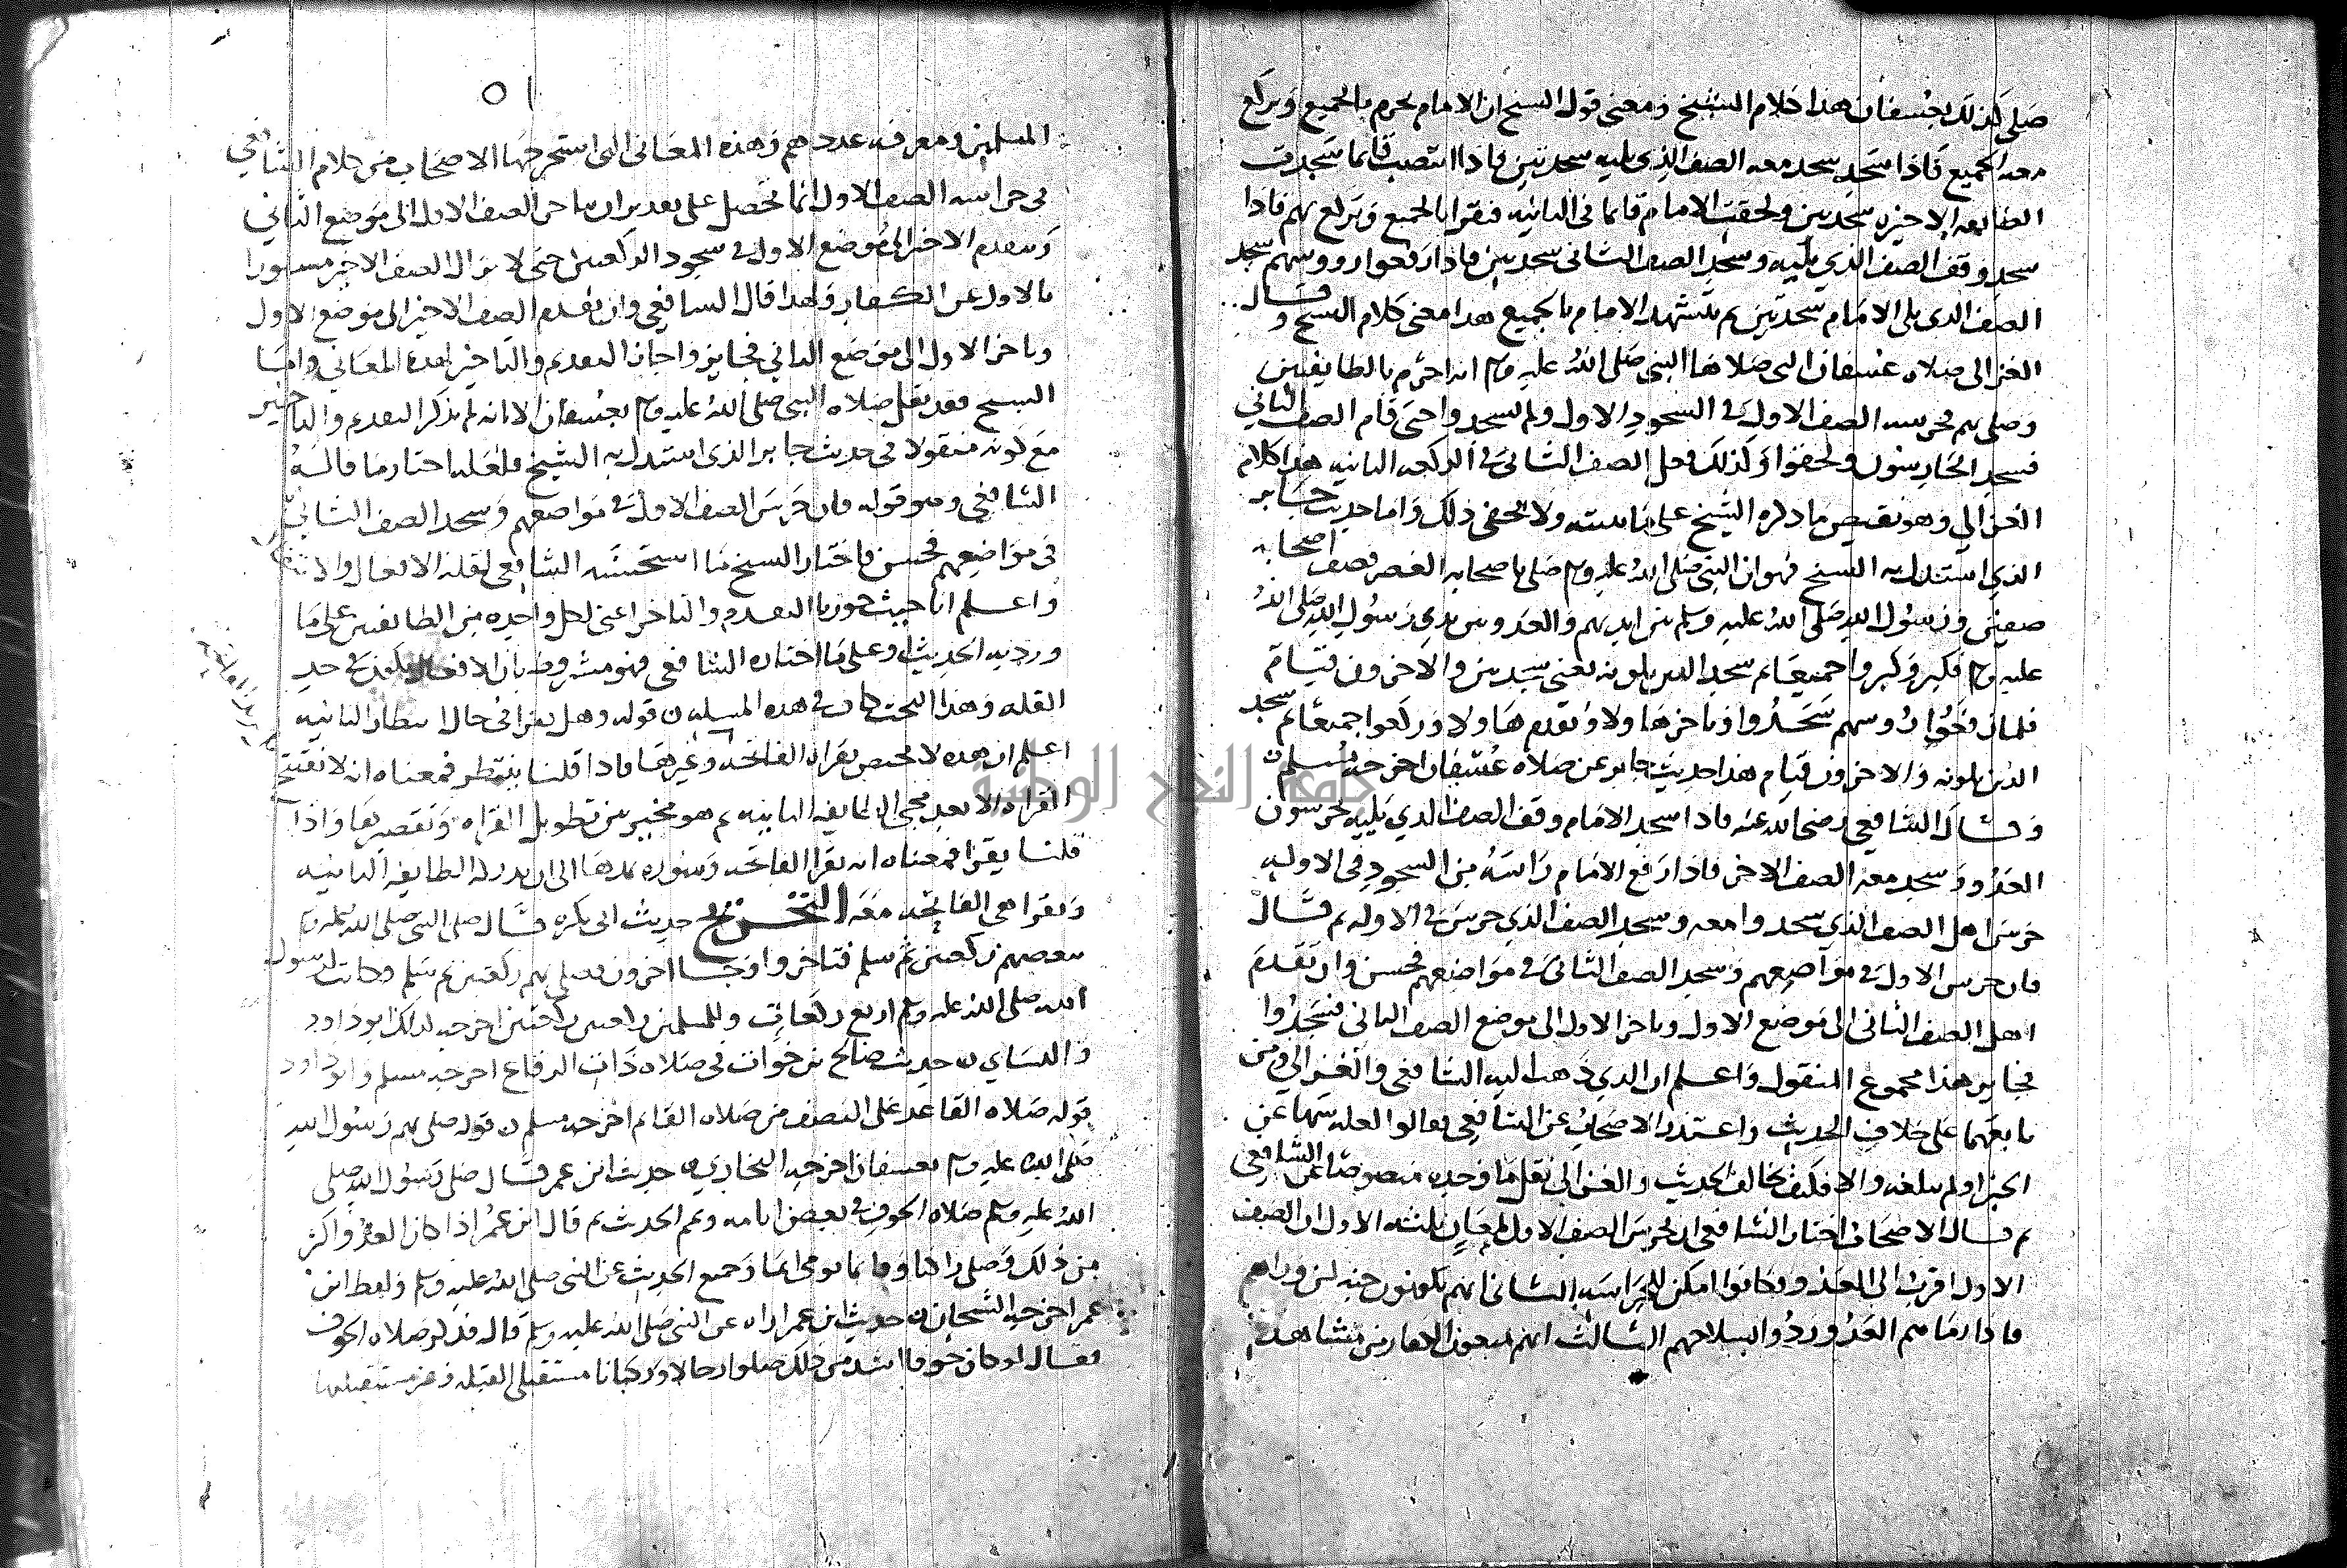 صلى كذلك بعسفان هذا كلام الشيخ ومعنى قول الشيخ ان الامام يحرم بالجميع ويركع
معه الجميع فاذا سجد سجد معه الصف الذي يليه سجدتين فاذا انتصب قائما سجدت
الطايفه الاخيره سجدتين ولحقت الامام قايما في الثانيه فيقرا بالجميع ويركع بهم فاذا
سجد وقف الصف الذي يليه وسجد الصف الثاني سجدتين فاذا رفعوا رووسهم سجد
الصف الذي يلي الامام سجدتين ثم يتشهد الامام بالجميع هذا معنى كلام الشيخ وقال
الغزالي صلاه عسفان التي صلاها النبي صلى الله عليه وسلم انه احرم بالطايفتين
وصلى بهم فحرسه الصف الاول في السجود الاول ولم يسجدوا حتى قام الصف الثاني
فسجد الحارسون ولحقوا وكذلك فعل الصف الثاني في الركعه الثانيه هذا كلام
الغزالي وهو نقيض ما ذكره الشيخ على ما بينته ولا يخفى ذلك واما حديث جابر
الذي استدل به الشيخ فهو ان النبي صلى الله عليه وسلم صلى باصحابه العصر فصف اصحابه
صفين ورسول الله صلى الله عليه وسلم بين ايديهم والعدو بين يدي رسول الله صلى الله
عليه وسلم فكبر وكبروا جميعا ثم سجد الذين يلونه يعني سجدتين والاخرون قيام
فلما رفعوا رؤوسهم سجدوا وتاخر هاولا وتقدم هاولا وركعوا جميعا ثم سجد
الذين يلونه والاخرون قيام هذا حديث جابر عن صلاه عسفان اخرجه مسلم
وقال الشافعي رضي الله عنه فاذا سجد الامام وقف الصف الذي يليه يحرسون
العدو وسجد معه الصف الاخر فاذا رفع الامام راسه من السجود في الاوله
حرس اهل الصف الذي سجدوا معه وسجد الصف الذي حرس في الاوله ثم قال
فان حرس الاول في مواضعهم وسجد الصف الثاني في مواضعهم فحسن وان تقدم
اهل الصف الثاني الى موضع الاول وتاخر الاول الى موضع الصف الثاني فسجدوا
فجايز هذا مجموع المنقول واعلم ان الذي ذهب اليه الشافعي والغزالي ومن
تابعهما على خلاف الحديث واعتذر الاصحاب عن الشافعي فقالوا لعله سها عن
الخبر او لم يبلغه والا فكيف يخالف الحديث والغزالي نقل ما وجده منصوصا عن الشافعي
ثم قال الاصحاب اختار الشافعي ان يحرس الصف الاول لمعان ثلثه الاول ان الصف
الاول اقرب الى العدو فكانوا امكن للحراسه الثاني انهم يكونون جنه لمن وراهم
فاذا رماهم العدو وردوا السلاحهم الثالث انهم يمنعون الكفار من مشاهدة
٥١
المسلمين ومعرفه عددهم وهذه المعاني التي استخرجها الاصحاب من كلام الشافعي
في حراسه الصف الاول انما تحصل على تقدير ان يتاخر الصف الاول الى موضع الثاني
ويتقدم الاخر الى موضع الاول في سجود الركعتين حتى لا يزال الصف الاخير مستورا
بالاول عن الكفار ولهذا قال الشافعي وان تقدم الصف الاخير الى موضع الاول
وتاخر الاول الى موضع الثاني فجايز واجاز التقدم والتاخير لهذه المعاني واما
الشيخ فقد نقل صلاه النبي صلى الله عليه وسلم بعسفان الا انه لم يذكر التقدم والتاخير
مع كونه منقولا في حديث جابر الذي استدل به الشيخ فلعله اختار ما قاله
الشافعي وهو قوله فان حرس الصف الاول في مواضعهم وسجد الصف الثاني
في مواضعهم فحسن فاختار الشيخ ما استحسنه الشافعي لقله الافعال والانتقال
واعلم انا حيث جوزنا التقدم والتاخر اعني لكل واحده من الطايفتين على ما
ورد به الحديث وعلى ما اختاره الشافعي فهو مشروط بان الافعال تكون في حد
القله وهذا البحث كاف في هذه المسله قوله وهل يقرا في حال انتظار الثانيه
اعلم ان هذه لا تختص بقراه الفاتحه وغيرها فاذا قلنا ينتظر فمعناه انه لا يفتتح
القراه الا بعد مجي الطايفه الثانيه ثم هو مخير بين تطويل القراه وتقصيرها واذا
قلنا يقرا فمعناه انه يقرا الفاتحه وسوره يمدها الى ان تدركه الطايفه الثانيه
وتقرا هي الفاتحه معه التخريج حديث ابي بكره قال صلى النبي صلى الله عليه وسلم
ببعضهم ركعتين ثم سلم فتاخروا وجا اخرون فصلى بهم ركعتين ثم سلم فكانت لرسول
الله صلى الله عليه وسلم اربع ركعات وللمسلمين ركعتين ركعتين اخرجه كذلك ابو داود
والنساي حديث صالح بن خوات في صلاه ذات الرقاع اخرجه مسلم وابو داود
قوله صلاه القاعد على النصف من صلاه القايم اخرجه مسلم قوله صلى بهم رسول الله
صلى الله عليه وسلم بعسفان اخرجه البخاري حديث ابن عمر قال صلى رسول الله صلى
الله عليه وسلم صلاه الخوف في بعض ايامه وتمم الحديث ثم قال ابن عمر اذا كان العدو اكثر
من ذلك وصلى راكبا وقايما يومي ايما وجميع الحديث عن النبي صلى الله عليه وسلم ولفظ ابن
عمر اخرجه الشيخان حديث ابن عمر اراه عن النبي صلى الله عليه وسلم قال فذكر صلاه الخوف
فقال او كان خوفا اشد من ذلك صلوا رجالا وركبانا مستقبلي القبله وغير مستقبليها
جامعة النجاح الوطنية